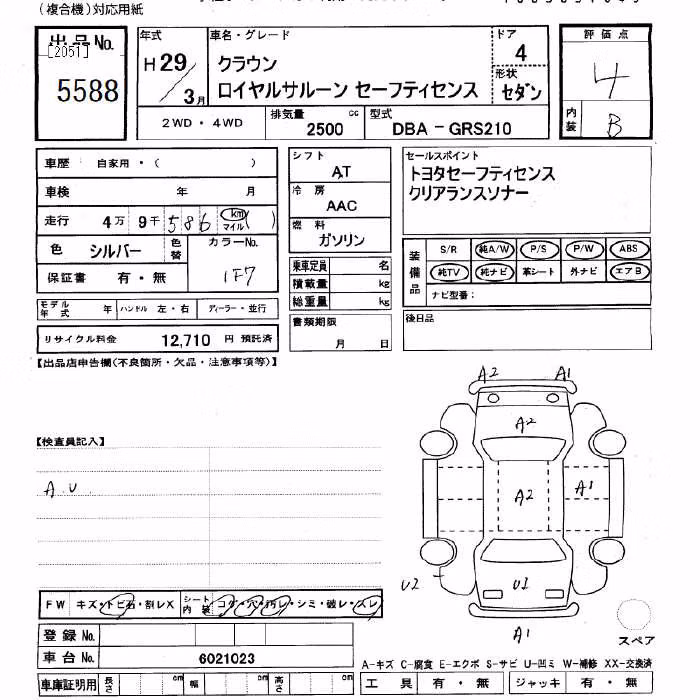 (複合機)対応用紙
出品No.
[2051]
5588
年式
H29/3月
車名・グレード
クラウン
ロイヤルサルーン セーフティセンス
ドア
4
形状
セダン
評価点
4
内装
B
2WD・4WD
排気量
2500
cc
型式
DBA-GRS210
車歴 自家用・( )
車検 年 月
走行 4万 9千 586 (km マイル)
色 シルバー 色替
カラーNo.
1F7
保証書 有・無
モデル年式 年 ハンドル 左・右 ディーラー・並行
リサイクル料金 12,710 円 預託済
シフト
AT
冷房
AAC
燃料
ガソリン
乗車定員 名
積載量 kg
総重量 kg
書類期限
月 日
セールスポイント
トヨタセーフティセンス
クリアランスソナー
装備品
S/R 純A/W P/S P/W ABS
純TV 純ナビ 革シート 外ナビ エアB
ナビ型番:
後日品
【出品店申告欄(不良箇所・欠品・注意事項等)】
【検査員記入】
A.U
A2 A1
A2
A2 A1
U2 U1
A1
スペア
FW キズ・トビ石・割レX シート内装 コゲ・穴・汚レ・シミ・破レ・スレ
登録No.
車台No. 6021023
A-キズ C-腐食 E-エクボ S-サビ U-凹ミ W-補修 XX-交換済
車庫証明用 長さ cm 幅 cm 高さ cm
工具 有・無 ジャッキ 有・無